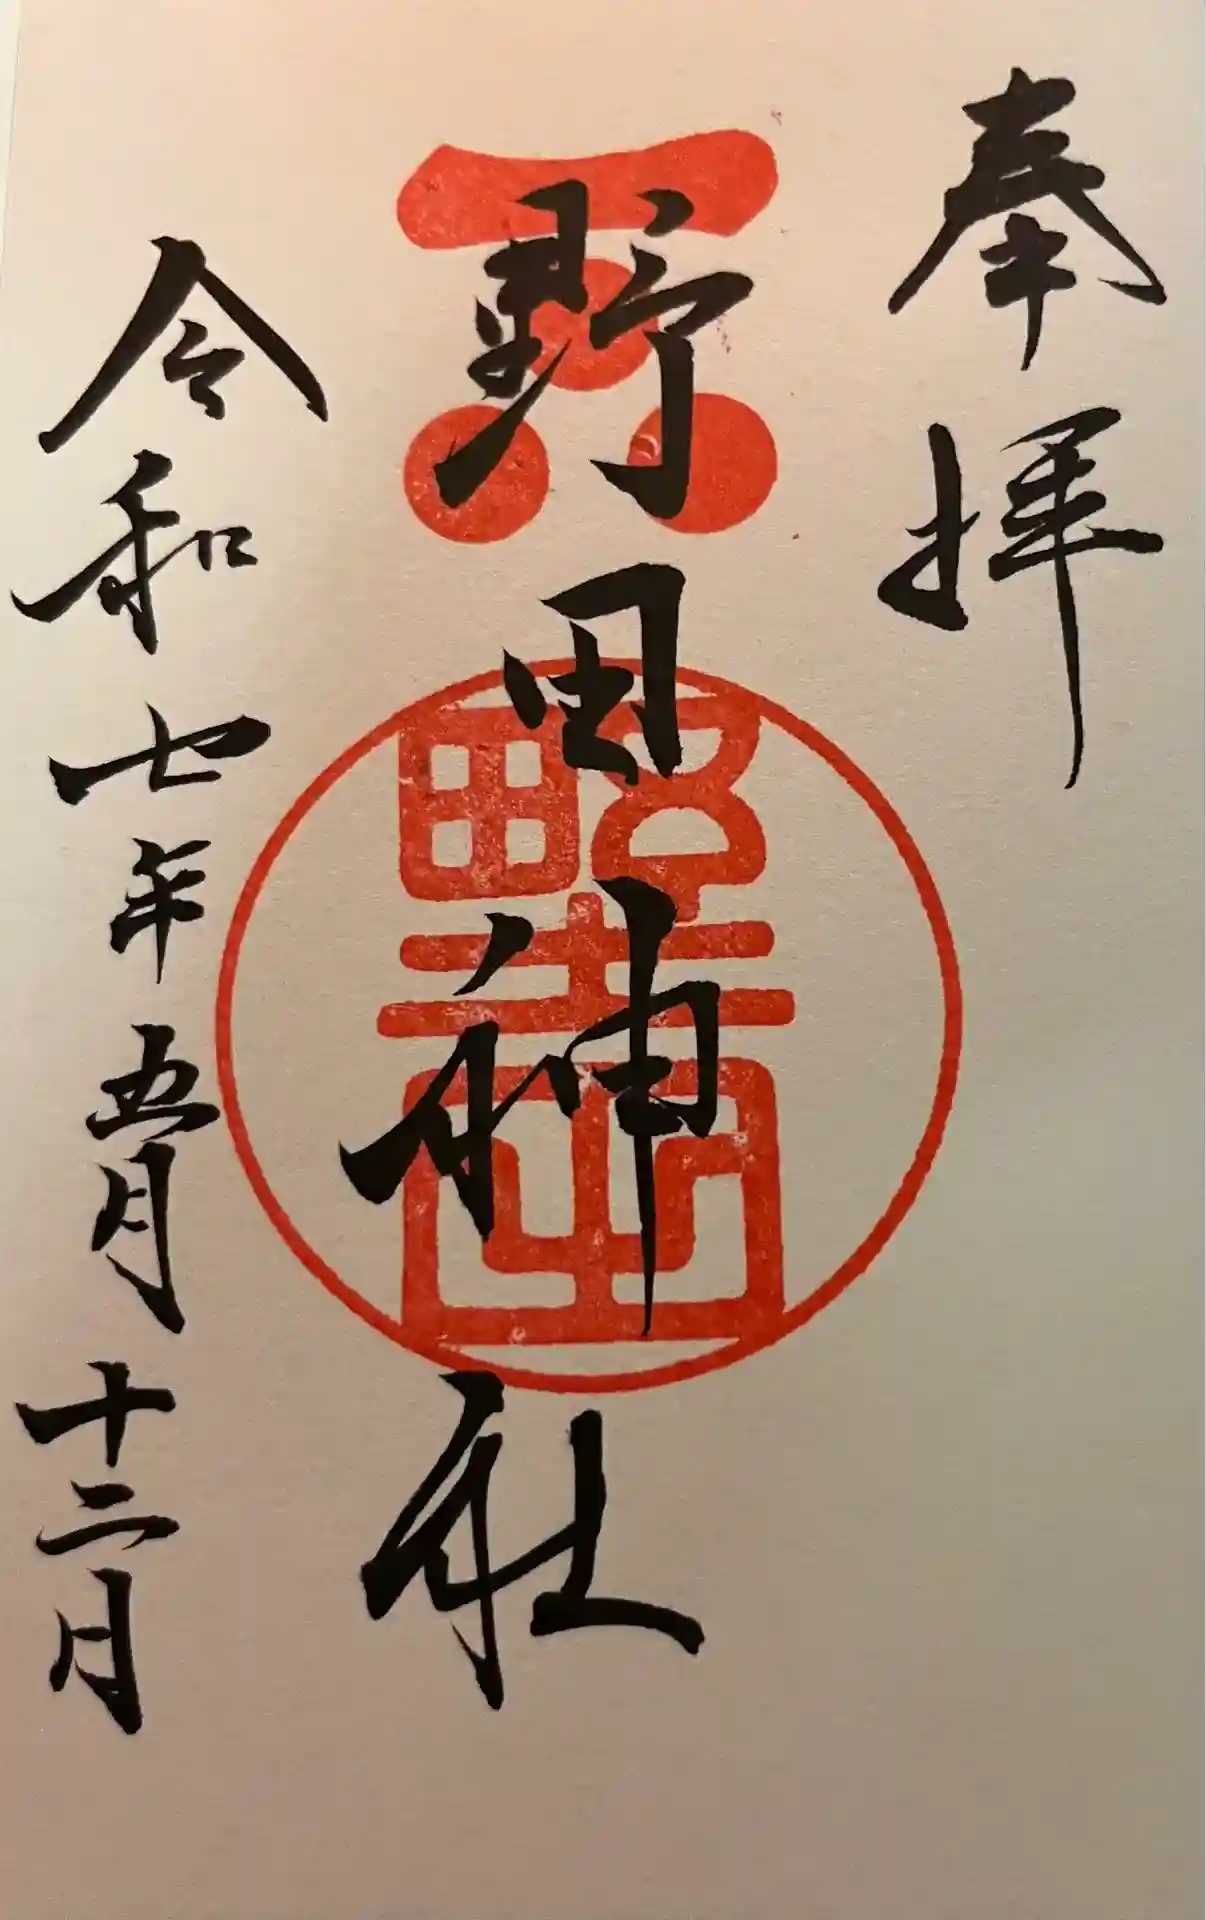 奉拝
野田神社
令和七年五月十二日